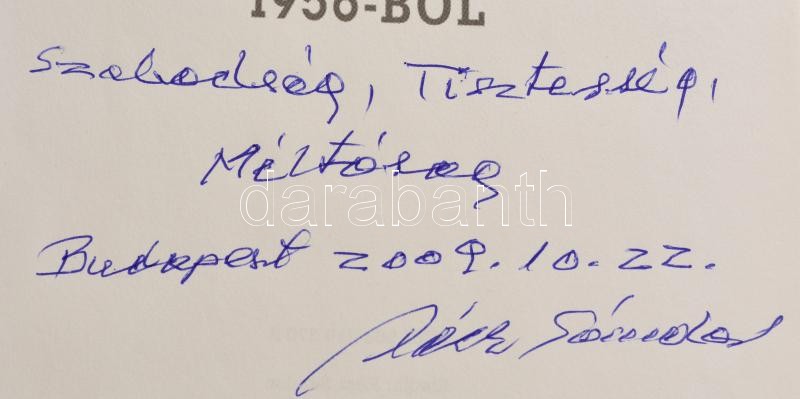 1956-BÓL
Szabadság, Tisztesség,
Méltóság
darabanth
Budapest 2009. 10. 22.
Rácz Sándor